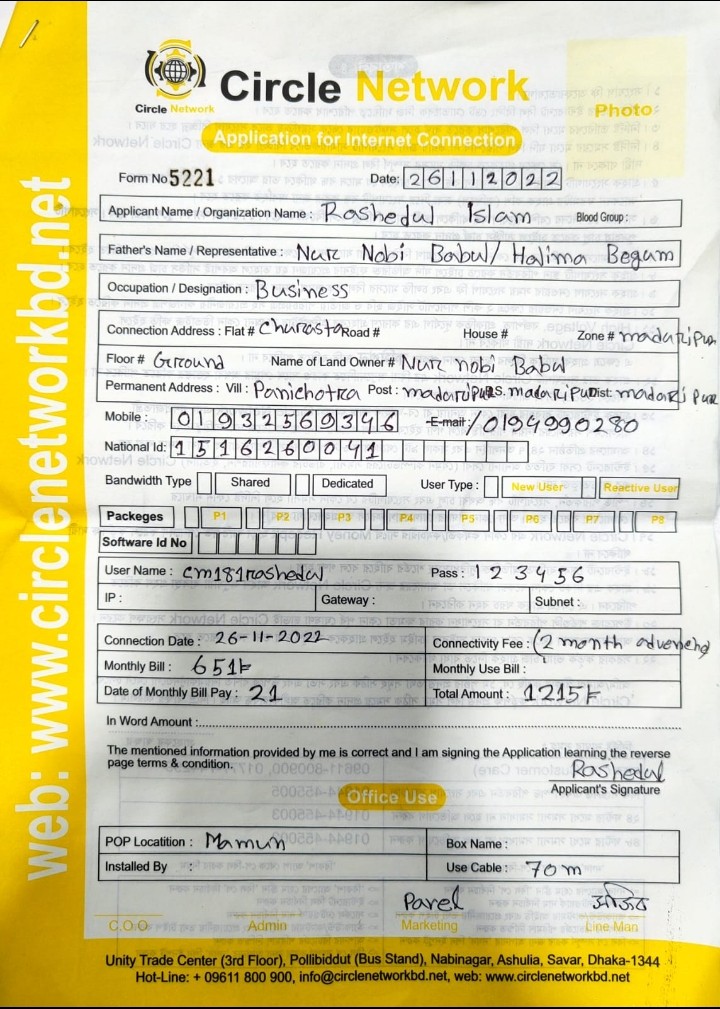 Circle Network
Circle Network
Photo
Application for Internet Connection
Form No 5221 Date: 26112022
Applicant Name / Organization Name : Rashedul Islam Blood Group :
Father's Name / Representative : Nur Nobi Babul/ Halima Begum
Occupation / Designation : Business
Connection Address : Flat # Charasta Road # House # Zone # madaripur
Floor # Ground Name of Land Owner # Nur nobi Babul
Permanent Address : Vill : Panichatra Post : madaripur P.S. madaripur Dist: madaripur
Mobile : 01932569346 E-mail : /0194990280
National Id: 1516260041
Bandwidth Type Shared Dedicated User Type : New User Reactive User
Packeges P1 P2 P3 P4 P5 P6 P7 P8
Software Id No
User Name : cm181rashedul Pass : 123456
IP : Gateway : Subnet :
Connection Date : 26-11-2022 Connectivity Fee : (2 month
Monthly Bill : 651৳ Monthly Use Bill :
Date of Monthly Bill Pay : 21 Total Amount : 1215৳
In Word Amount :
The mentioned information provided by me is correct and I am signing the Application learning the reverse
page terms & condition.
Rashedul
Applicant's Signature
Office Use
POP Locatition : Mamun Box Name :
Installed By : Use Cable : 70m
Parel
C.O.O Admin Marketing Line Man
Unity Trade Center (3rd Floor), Pollibiddut (Bus Stand), Nabinagar, Ashulia, Savar, Dhaka-1344
Hot-Line: + 09611 800 900, info@circlenetworkbd.net, web: www.circlenetworkbd.net
web: www.circlenetworkbd.net